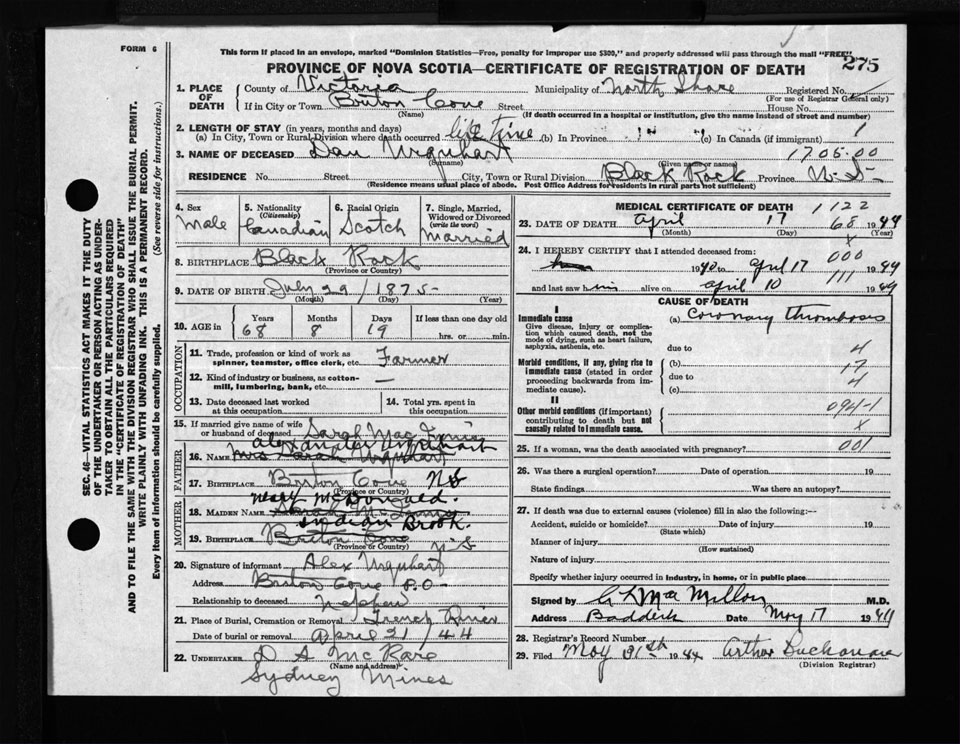 FORM 6
This form if placed in an envelope, marked "Dominion Statistics—Free, penalty for improper use $300," and properly addressed will pass through the mail "FREE"
PROVINCE OF NOVA SCOTIA—CERTIFICATE OF REGISTRATION OF DEATH
275
1. PLACE OF DEATH
County of Victoria Municipality of North Shore Registered No.
(For use of Registrar General only)
If in City or Town Briton Cove Street House No.
(Name) (If death occurred in a hospital or institution, give the name instead of street and number)
2. LENGTH OF STAY (in years, months and days)
(a) In City, Town or Rural Division where death occurred life time (b) In Province (c) In Canada (if immigrant)
3. NAME OF DECEASED Dan Urquhart 1705.00
(Surname) (Given name or names)
RESIDENCE No. Street City, Town or Rural Division Black Rock Province N.S.
(Residence means usual place of abode. Post Office Address for residents in rural parts not sufficient)
4. Sex Male
5. Nationality (Citizenship) Canadian
6. Racial Origin Scotch
7. Single, Married, Widowed or Divorced (write the word) Married
8. BIRTHPLACE Black Rock
(Province or Country)
9. DATE OF BIRTH July 29 / 1875
(Month) (Day) (Year)
10. AGE in Years Months Days If less than one day old
68 8 19 hrs. or min.
OCCUPATION
11. Trade, profession or kind of work as spinner, teamster, office clerk, etc. Farmer
12. Kind of industry or business, as cotton-mill, lumbering, bank, etc. —
13. Date deceased last worked at this occupation
14. Total yrs. spent in this occupation
15. If married give name of wife or husband of deceased Sarah
FATHER
Alexander Urquhart
16. NAME Mrs Sarah Urquhart
17. BIRTHPLACE Briton Cove NS
(Province or Country)
MOTHER
Mary McDonald.
18. MAIDEN NAME Sarah
Indian Brook.
19. BIRTHPLACE Briton Cove N.S
(Province or Country)
20. Signature of informant Alex Urquhart
Address Briton Cove P.O.
Relationship to deceased Nephew
21. Place of Burial, Cremation or Removal French River
Date of burial or removal April 21 / 44
22. UNDERTAKER D A McRae
(Name and address)
Sydney Mines
MEDICAL CERTIFICATE OF DEATH 1122
23. DATE OF DEATH April 17 68 1944
(Month) (Day) (Year)
X
24. I HEREBY CERTIFY that I attended deceased from 000
1940 to April 17 1944
111
and last saw him alive on April 10 1944
CAUSE OF DEATH
I
Immediate cause
Give disease, injury or complication which caused death, not the mode of dying, such as heart failure, asphyxia, asthenia, etc.
(a) Coronary Thrombosis
due to 4
Morbid conditions, if any, giving rise to immediate cause (stated in order proceeding backwards from immediate cause).
(b) 17
due to 4
(c)
II
Other morbid conditions (if important) contributing to death but not causally related to immediate cause.
094-1
X
25. If a woman, was the death associated with pregnancy? 001
26. Was there a surgical operation? Date of operation 19
State findings Was there an autopsy?
27. If death was due to external causes (violence) fill in also the following:—
Accident, suicide or homicide? Date of injury 19
(State which)
Manner of injury
(How sustained)
Nature of injury
Specify whether injury occurred in industry, in home, or in public place
Signed by MacMillan M.D.
Address Baddeck Date May 17 1944
28. Registrar's Record Number
29. Filed May 31st 1944 Arthur Buchanan
(Division Registrar)
SEC. 46—VITAL STATISTICS ACT MAKES IT THE DUTY OF THE UNDERTAKER OR PERSON ACTING AS UNDERTAKER TO OBTAIN ALL THE PARTICULARS REQUIRED IN THE "CERTIFICATE OF REGISTRATION OF DEATH"
AND TO FILE THE SAME WITH THE DIVISION REGISTRAR WHO SHALL ISSUE THE BURIAL PERMIT.
WRITE PLAINLY WITH UNFADING INK. THIS IS A PERMANENT RECORD.
Every item of information should be carefully supplied. (See reverse side for instructions.)